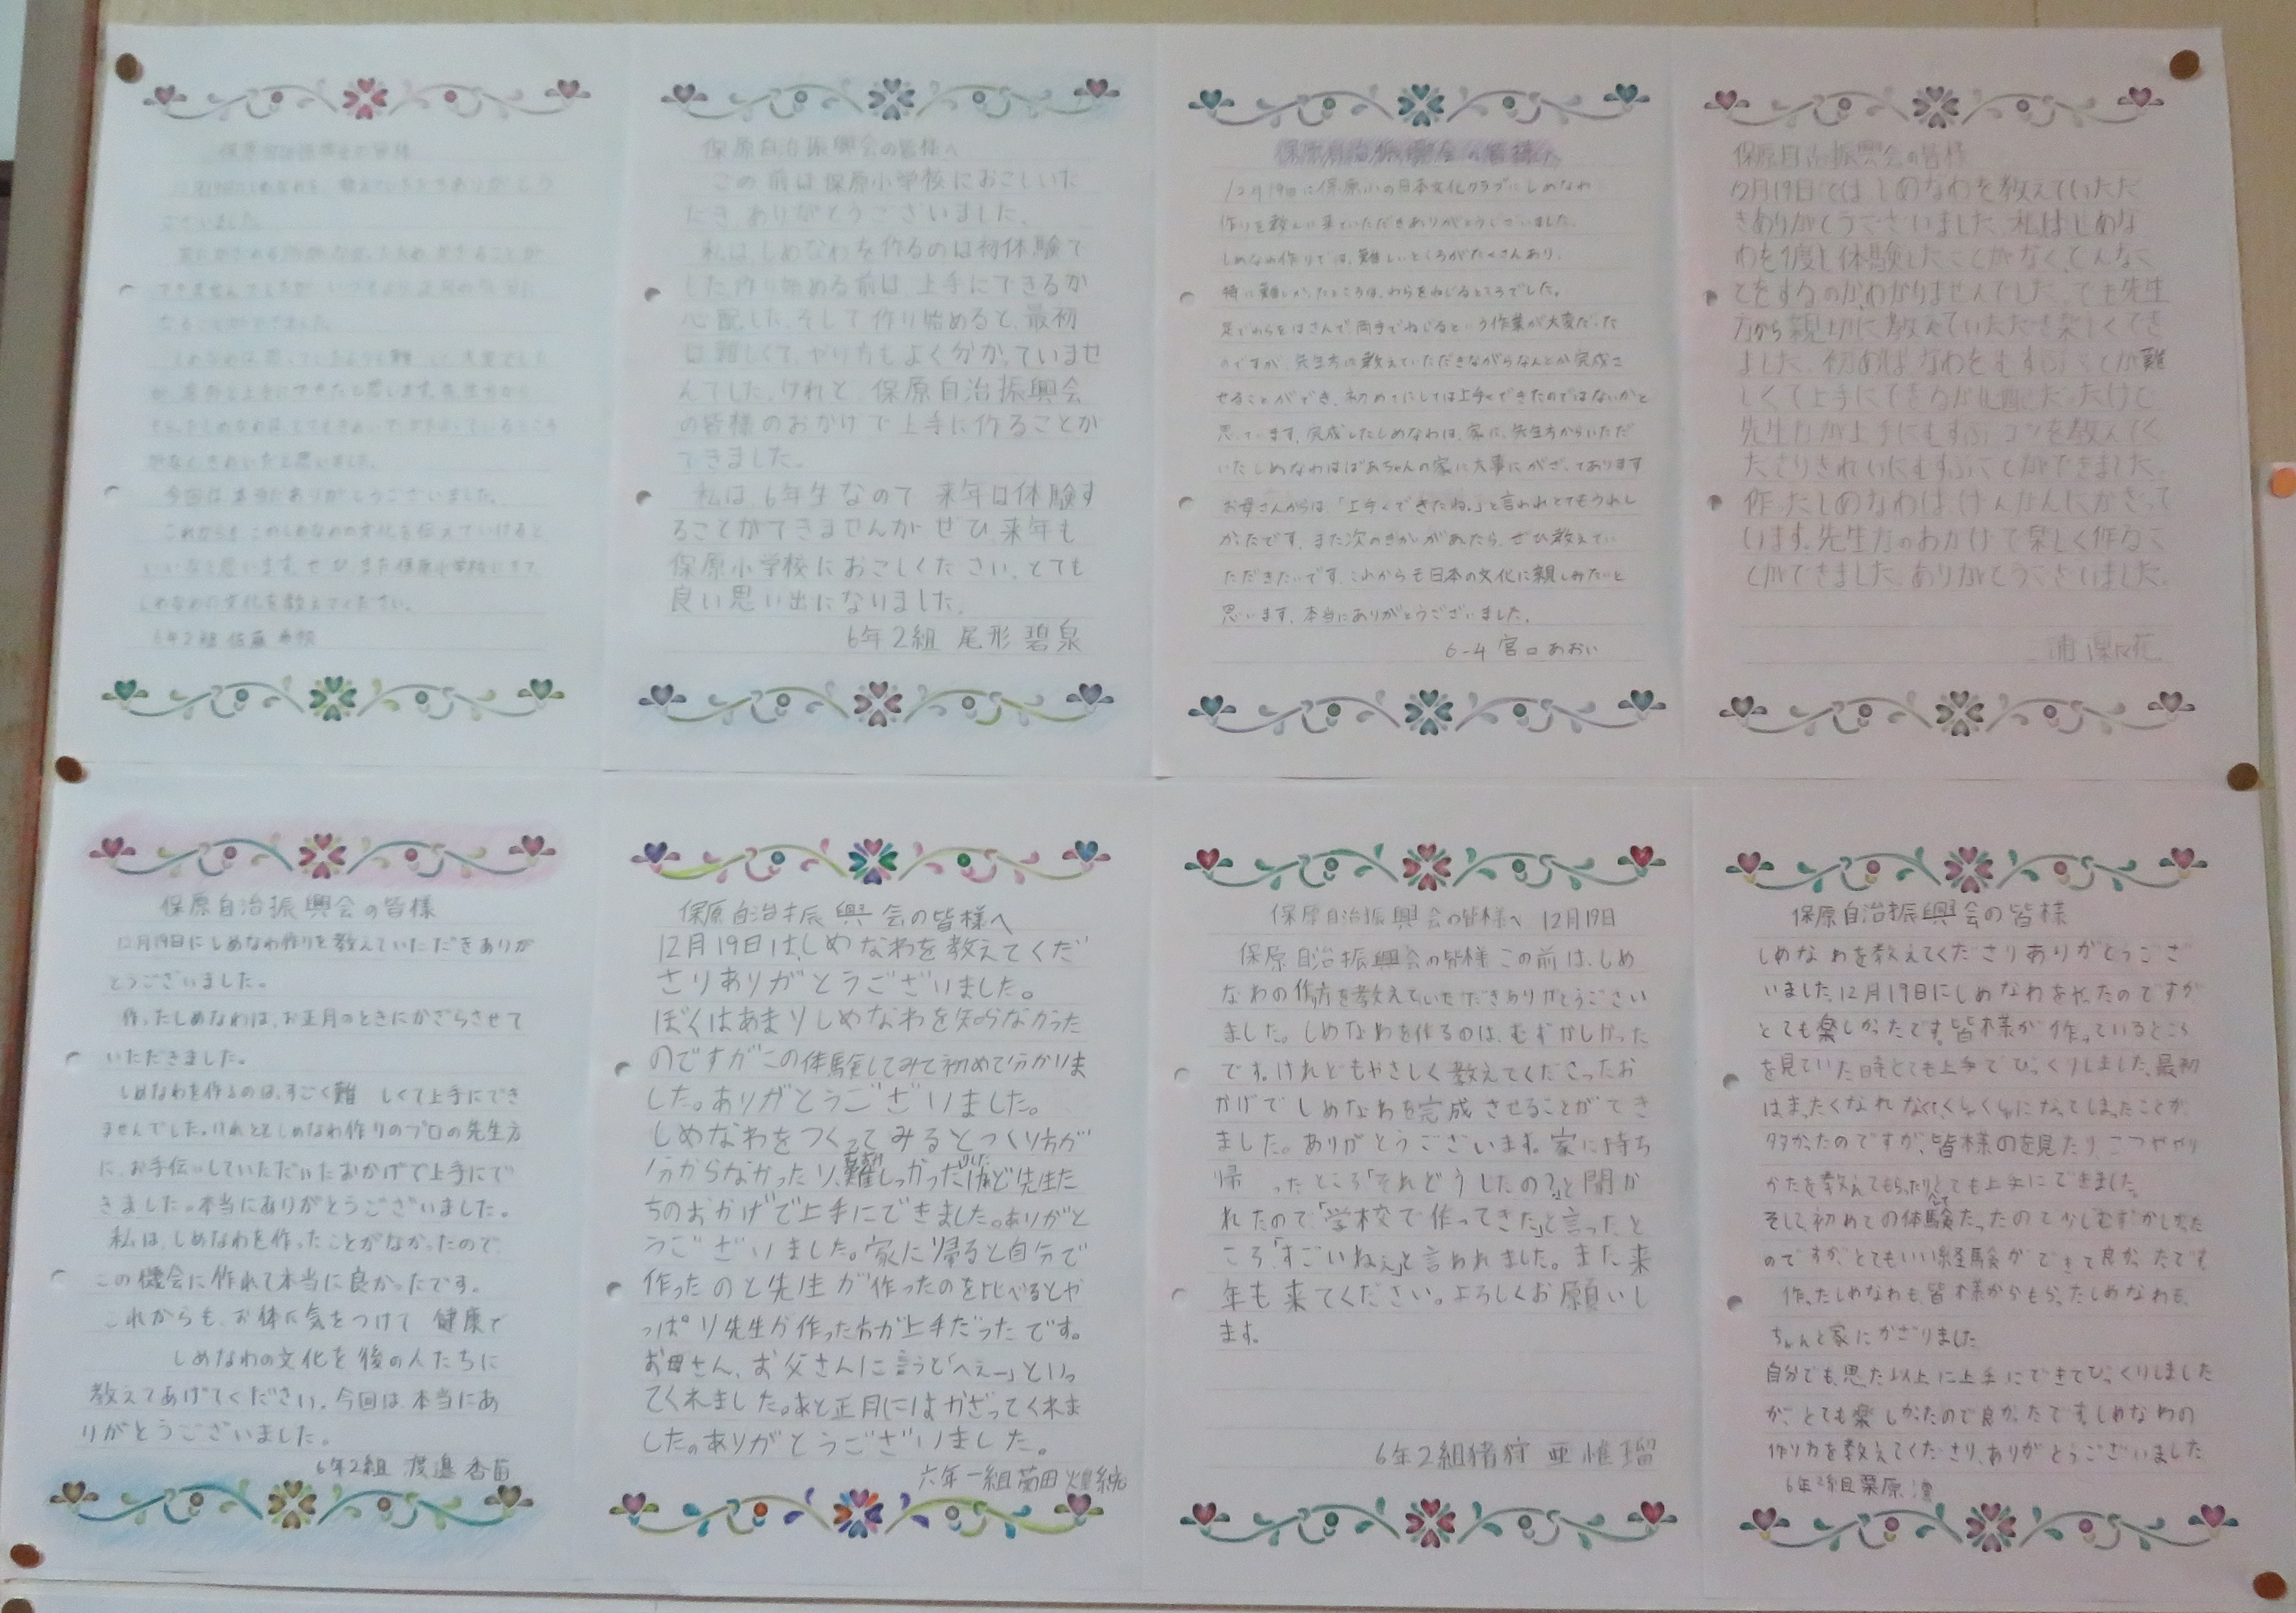 保原自治振興会の皆様
ございました。
今回は本当にありがとうございました。
これからもこのしめなわの文化を伝えていけると
いいなと思います。ぜひまた保原小学校にきて、
しめなわの文化を教えてください。
6年2組 佐藤
保原自治振興会の皆様へ
この前は保原小学校におこしいた
だき、ありがとうございました。
私は、しめなわを作るのは初体験で
した。作り始める前は、上手にできるか
心配した。そして作り始めると、最初
は難しくて、やり方もよく分かっていませ
んでした。けれど、保原自治振興会
の皆様のおかげで上手に作ることが
できました。
私は、6年生なので来年は体験す
ることができませんがぜひ、来年も
保原小学校におこしください。とても
良い思い出になりました。
6年2組 尾形 碧泉
保原自治振興会の皆様へ
12月19日に保原小の日本文化クラブにしめなわ
作りを教えに来ていただきありがとうございました。
しめなわ作りでは、難しいところがたくさんあり、
特に難しかったところは、わらをねじるところでした。
足でわらをはさんで両手でねじるという作業が大変だった
のですが、先生方に教えていただきながらなんとか完成さ
せることができ、初めてにしては上手くできたのではないかと
思っています。完成したしめなわは、家に、先生方からいただ
いたしめなわはばあちゃんの家に大事にかざってあります
お母さんからは、「上手くできたね。」と言われとてもうれし
かったです。また次のきかいがあったら、ぜひ教えてい
ただきたいです。これからも日本の文化に親しみたいと
思います。本当にありがとうございました。
6-4 宮口 あおい
保原自治振興会の皆様
12月19日ではしめなわを教えていただ
きありがとうございました。私はしめな
わを1度も体験したことがなく、どんなこ
とをするのかわかりませんでした。でも先生
方から親切に教えていただき楽しくでき
ました。初めは、なわをむすぶことが難
しくて上手にできるか心配だったけど
先生方が上手にむすぶコツを教えてく
ださりきれいにむすぶことができました。
作ったしめなわは、げんかんにかざって
います。先生方のおかげで楽しく作るこ
とができました。ありがとうございました。
保原自治振興会の皆様
12月19日にしめなわ作りを教えていただきありが
とうございました。
作ったしめなわは、お正月のときにかざらさせて
いただきました。
しめなわを作るのは、すごく難しくて上手にでき
ませんでした。けれどもしめなわ作りのプロの先生方
に、お手伝いしていただいたおかげで上手にで
きました。本当にありがとうございました。
私は、しめなわを作ったことがなかったので、
この機会に作れて本当に良かったです。
これからも、お体に気をつけて 健康で
しめなわの文化を後の人たちに
教えてあげてください。今回は、本当にあ
りがとうございました。
6年2組 渡邉 香苗
保原自治振興会の皆様へ
12月19日は、しめなわを教えてくだ
さりありがとうございました。
ぼくはあまりしめなわを知らなかった
のですがこの体験してみて初めて分かりま
した。ありがとうございました。
しめなわをつくってみるとつくり方が
分からなかったり、難しっかったけど先生た
ちのおかげで上手にできました。ありがと
うございました。家に帰ると自分で
作ったのと先生が作ったのを比べるとや
っぱり先生が作った方が上手だったです。
お母さん、お父さんに言うと「へぇー」といっ
てくれました。あと正月にはかざってくれま
した。ありがとうございました。
六年一組 菊田 煌統
保原自治振興会の皆様へ 12月19日
保原自治振興会の皆様この前は、しめ
なわの作方を教えていただきありがとうござい
ました。しめなわを作るのは、むずかしかった
です。けれどもやさしく教えてくださったお
かげでしめなわを完成させることができ
ました。ありがとうございます。家に持ち
帰ったところ「それどうしたの?」と聞か
れたので「学校で作ってきた」と言ったと
ころ「すごいねぇ」と言われました。また来
年も来てください。よろしくお願いし
ます。
6年2組 猪狩 亜惟瑠
保原自治振興会の皆様
しめなわを教えてくださりありがとうござ
いました。12月19日にしめなわをやったのですが
とても楽しかったです。皆様が作っているところ
を見ていた時とても上手でびっくりしました。最初
はまったくなれなくて、くしゃくしゃになってしまったことが
多かったのですが、皆様のを見たり、こつややり
かたを教えてもらったりしてとても上手にできました。
そして、初めての体験だったので少しむずかしかった
のですが、とてもいい経験ができて良かったです。
作ったしめなわも、皆様からもらったしめなわも、
ちゃんと家にかざりました
自分でも、思った以上に上手にできてびっくりしました
が、とても楽しかったので良かったです。しめなわの
作り方を教えてくださり、ありがとうございました
6年2組 栗原 凛